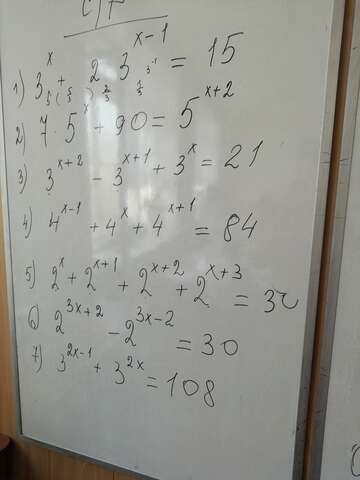 С/Р
1) 3^x + 2 3^(x-1) = 15
2) 7 · 5^x + 90 = 5^(x+2)
3) 3^(x+2) - 3^(x+1) + 3^x = 21
4) 4^(x-1) + 4^x + 4^(x+1) = 84
5) 2^x + 2^(x+1) + 2^(x+2) + 2^(x+3) = 30
6) 2^(3x+2) - 2^(3x-2) = 30
7) 3^(2x-1) + 3^(2x) = 108